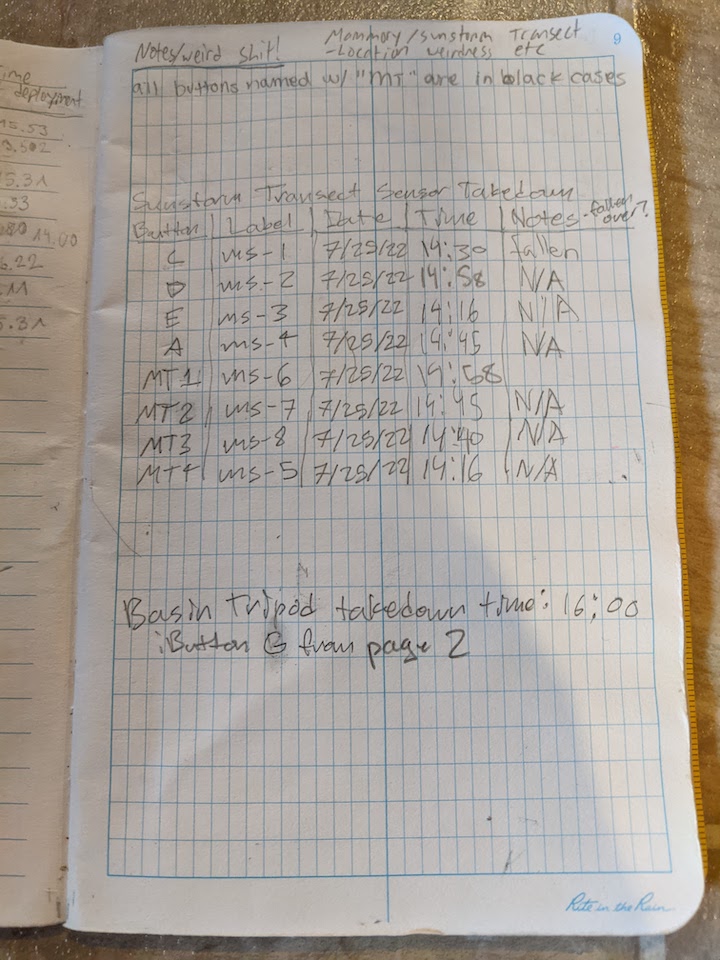 Time
deployment
15.53
3.502
15.31
.33
080 14.00
6.22
.11
5.31
Notes/weird shit!
Mammory/sunstorm Transect
-Location weirdness etc
9
all buttons named w/ "MT" are in black cases
Sunstorm Transect Sensor Takedown
Button | Label | Date | Time | Notes - fallen over?
C | ms-1 | 7/25/22 | 14:30 | fallen
D | ms-2 | 7/25/22 | 14:58 | N/A
E | ms-3 | 7/25/22 | 14:16 | N/A
A | ms-4 | 7/25/22 | 14:45 | N/A
MT1 | ms-6 | 7/25/22 | 14:58
MT2 | ms-7 | 7/25/22 | 14:45 | N/A
MT3 | ms-8 | 7/25/22 | 14:40 | N/A
MT4 | ms-5 | 7/25/22 | 14:16 | N/A
Basin Tripod takedown time: 16:00
iButton G from page 2
Rite in the Rain